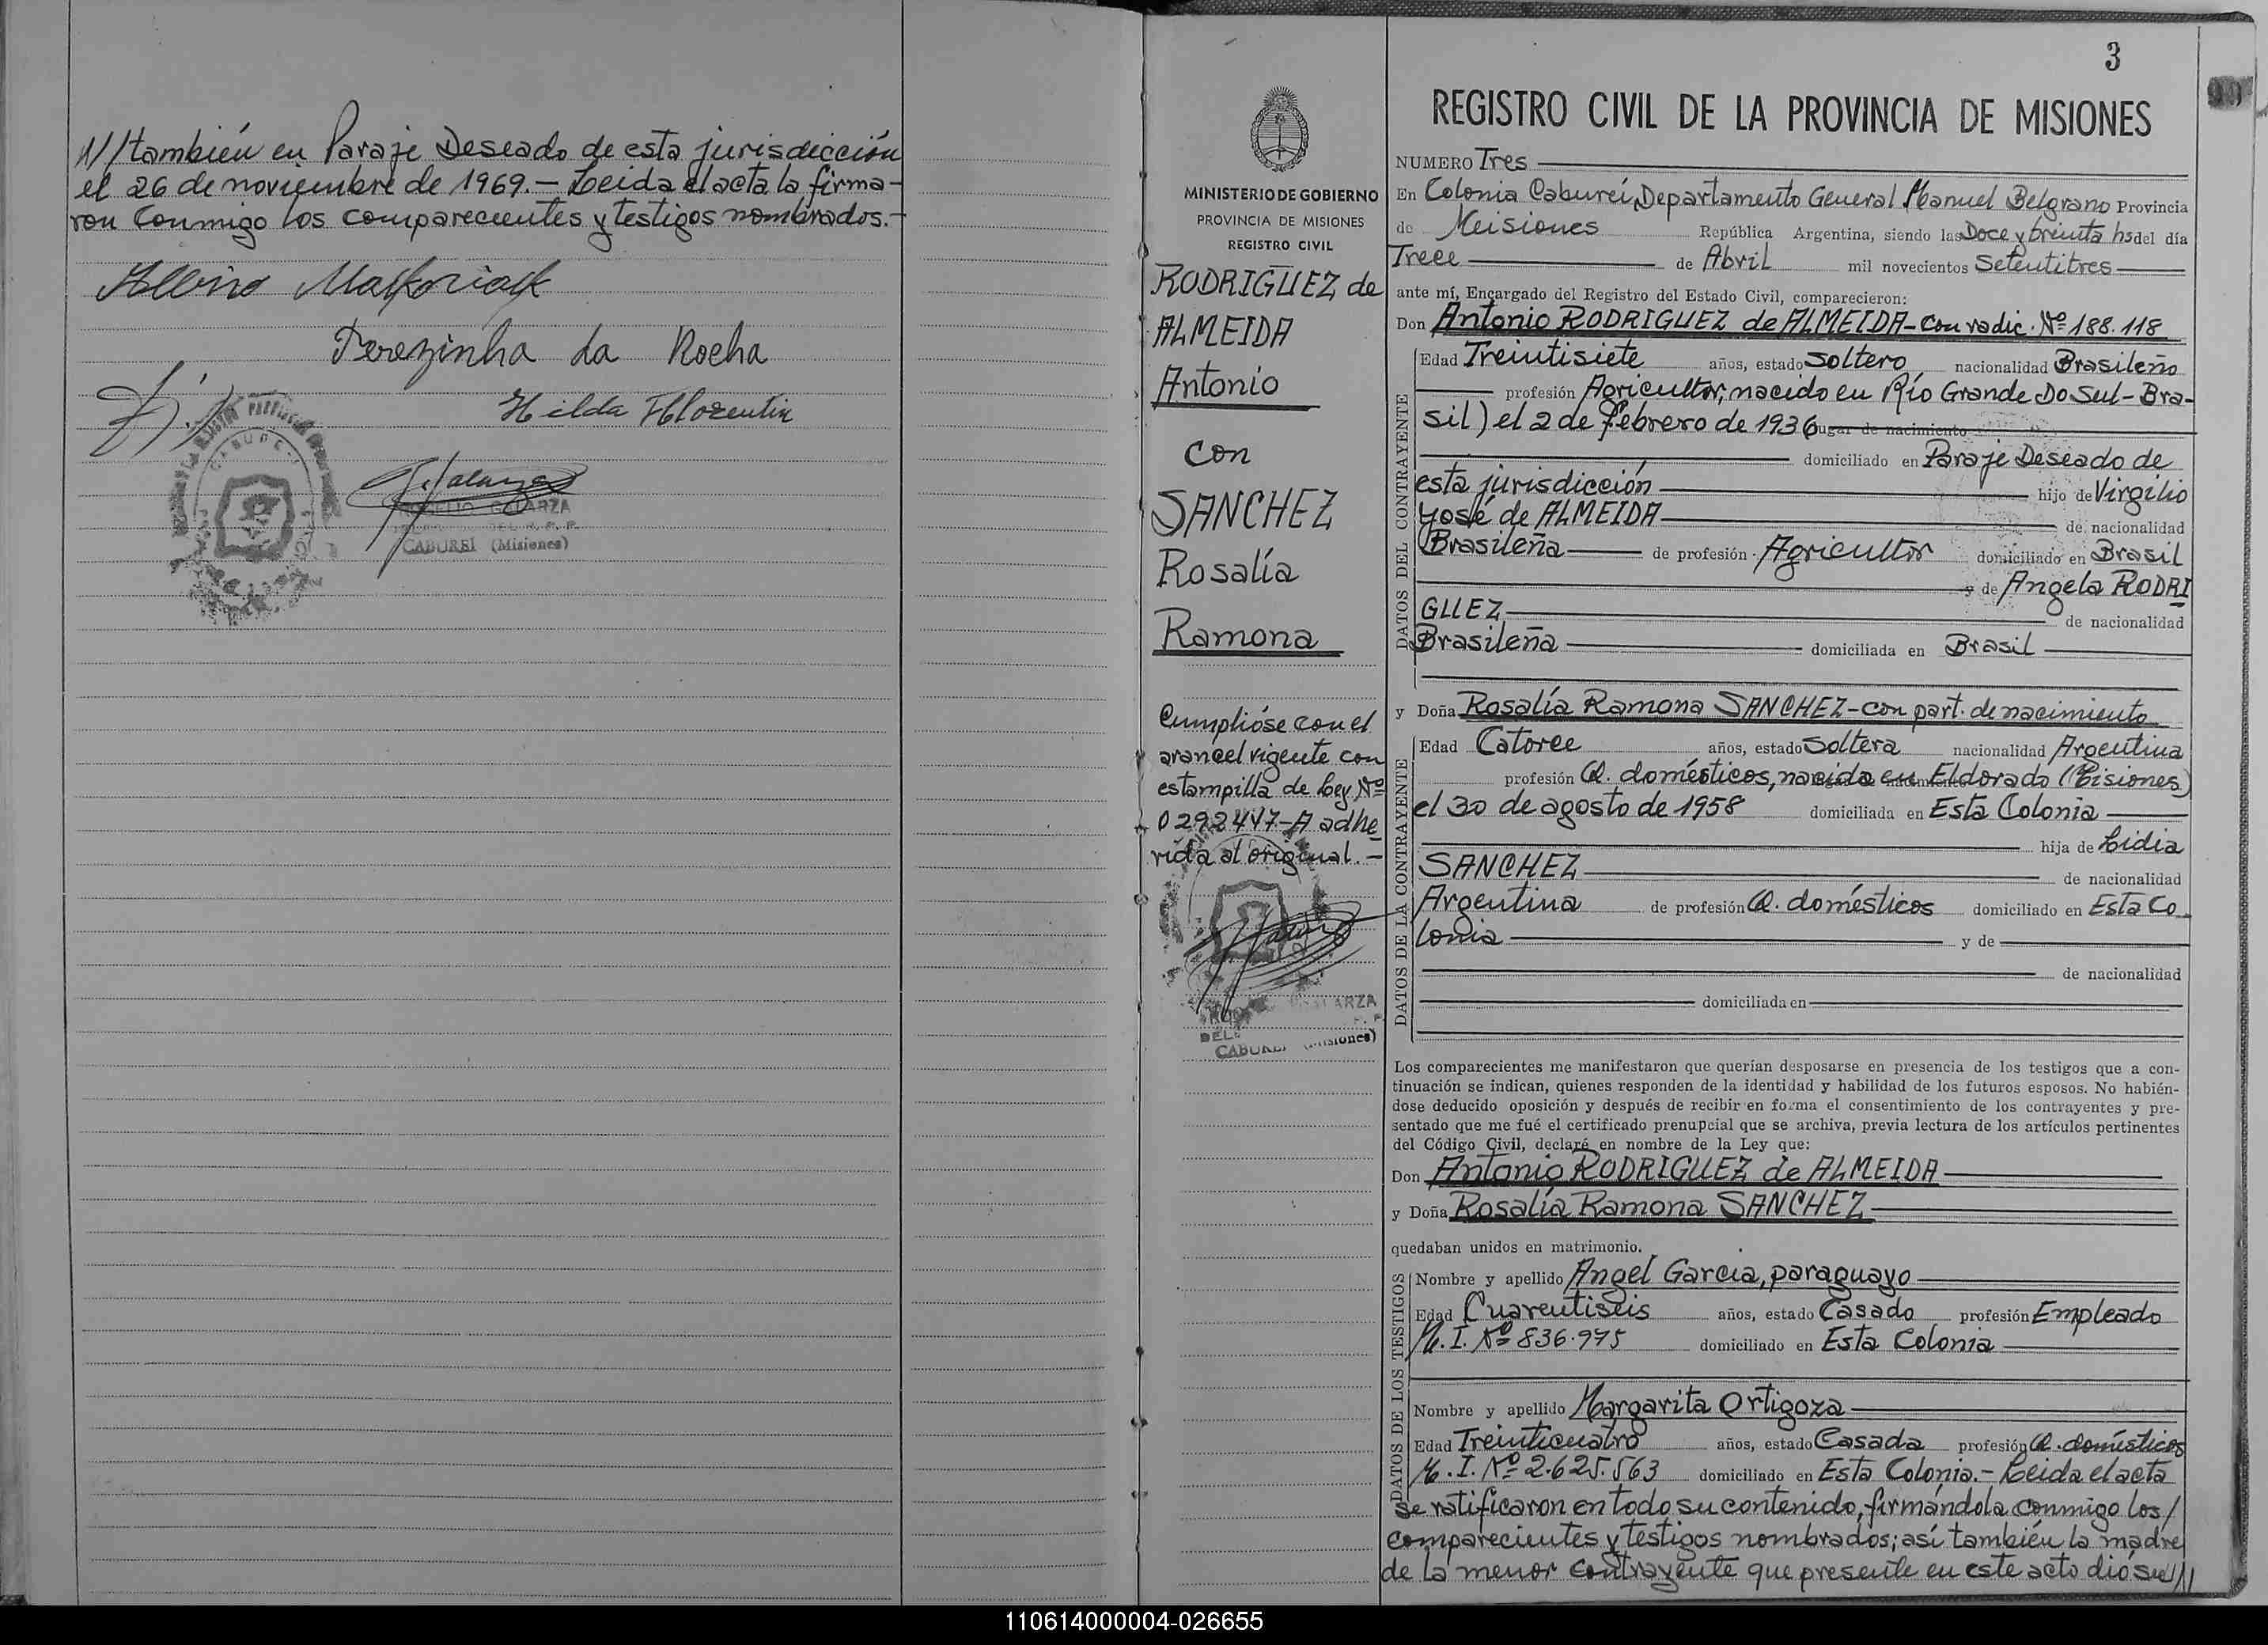 //también en Paraje Deseado de esta jurisdicción
el 26 de noviembre de 1969.- Leida el acta la firma-
ron conmigo los comparecientes y testigos nombrados.-
Terezinha da Rocha
Hilda Florentin
GALARZA
CABUREI (Misiones)
3
REGISTRO CIVIL DE LA PROVINCIA DE MISIONES
MINISTERIO DE GOBIERNO
PROVINCIA DE MISIONES
REGISTRO CIVIL
RODRIGUEZ de
ALMEIDA
Antonio
con
SANCHEZ
Rosalía
Ramona
Cumplióse con el
arancel vigente con
estampilla de Ley Nº
0292447-A adhe
rida al original.-
CABUREI (Misiones)
NUMERO Tres
En Colonia Cabureí, Departamento General Manuel Belgrano Provincia
de Misiones República Argentina, siendo las Doce y treinta hs del día
Trece de Abril mil novecientos Setentitres
ante mí, Encargado del Registro del Estado Civil, comparecieron:
Don Antonio RODRIGUEZ de ALMEIDA-con radic. Nº 188.118
DATOS DEL CONTRAYENTE
Edad Treintisiete años, estado Soltero nacionalidad Brasileño
profesión Agricultor, nacido en Río Grande Do Sul-Bra-
sil) el 2 de febrero de 1936 lugar de nacimiento
domiciliado en Paraje Deseado de
esta jurisdicción hijo de Virgilio
José de ALMEIDA de nacionalidad
Brasileña de profesión Agricultor domiciliado en Brasil
y de Angela RODRI
GUEZ de nacionalidad
Brasileña domiciliada en Brasil
y Doña Rosalía Ramona SANCHEZ-con part. de nacimiento
DATOS DE LA CONTRAYENTE
Edad Catorce años, estado Soltera nacionalidad Argentina
profesión Q. domésticos, nacida en Eldorado (Misiones)
el 30 de agosto de 1958 domiciliada en Esta Colonia
hija de Lidia
SANCHEZ de nacionalidad
Argentina de profesión Q. domésticos domiciliado en Esta Co
lonia y de
de nacionalidad
domiciliada en
Los comparecientes me manifestaron que querían desposarse en presencia de los testigos que a con-
tinuación se indican, quienes responden de la identidad y habilidad de los futuros esposos. No habién-
dose deducido oposición y después de recibir en forma el consentimiento de los contrayentes y pre-
sentado que me fué el certificado prenupcial que se archiva, previa lectura de los artículos pertinentes
del Código Civil, declaré en nombre de la Ley que:
Don Antonio RODRIGUEZ de ALMEIDA
y Doña Rosalía Ramona SANCHEZ
quedaban unidos en matrimonio.
DATOS DE LOS TESTIGOS
Nombre y apellido Angel Garcia, paraguayo
Edad Cuarentiseis años, estado Casado profesión Empleado
M. I. Nº 836.975 domiciliado en Esta Colonia
Nombre y apellido Margarita Ortigoza
Edad Treinticuatro años, estado Casada profesión Q. domésticos
M. I. Nº 2.625.563 domiciliado en Esta Colonia.- Leida el acta
se ratificaron en todo su contenido, firmándola conmigo los/
comparecientes y testigos nombrados; así también la madre
de la menor contrayente que presente en este acto dió su//
110614000004-026655